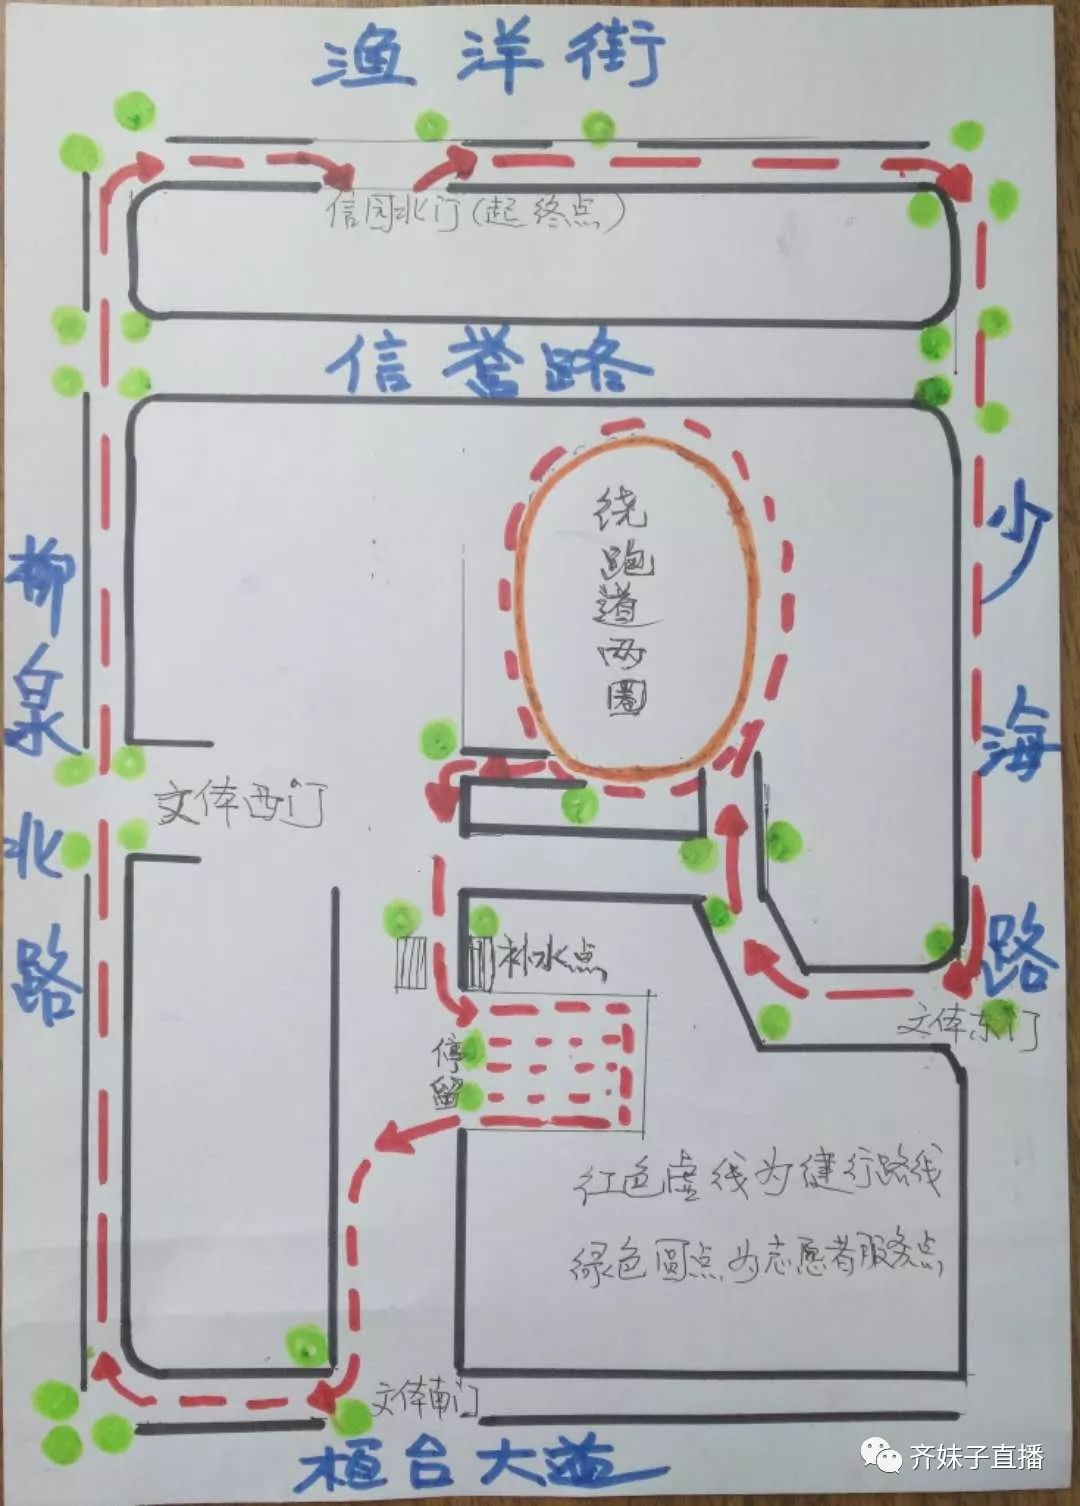 渔洋街
信园北门(起终点)
信誉路
绕跑道两圈
少海路
柳泉北路
文体西门
补水点
文体东门
停留
红色虚线为健行路线
绿色圆点为志愿者服务点
文体南门
桓台大道
齐妹子直播